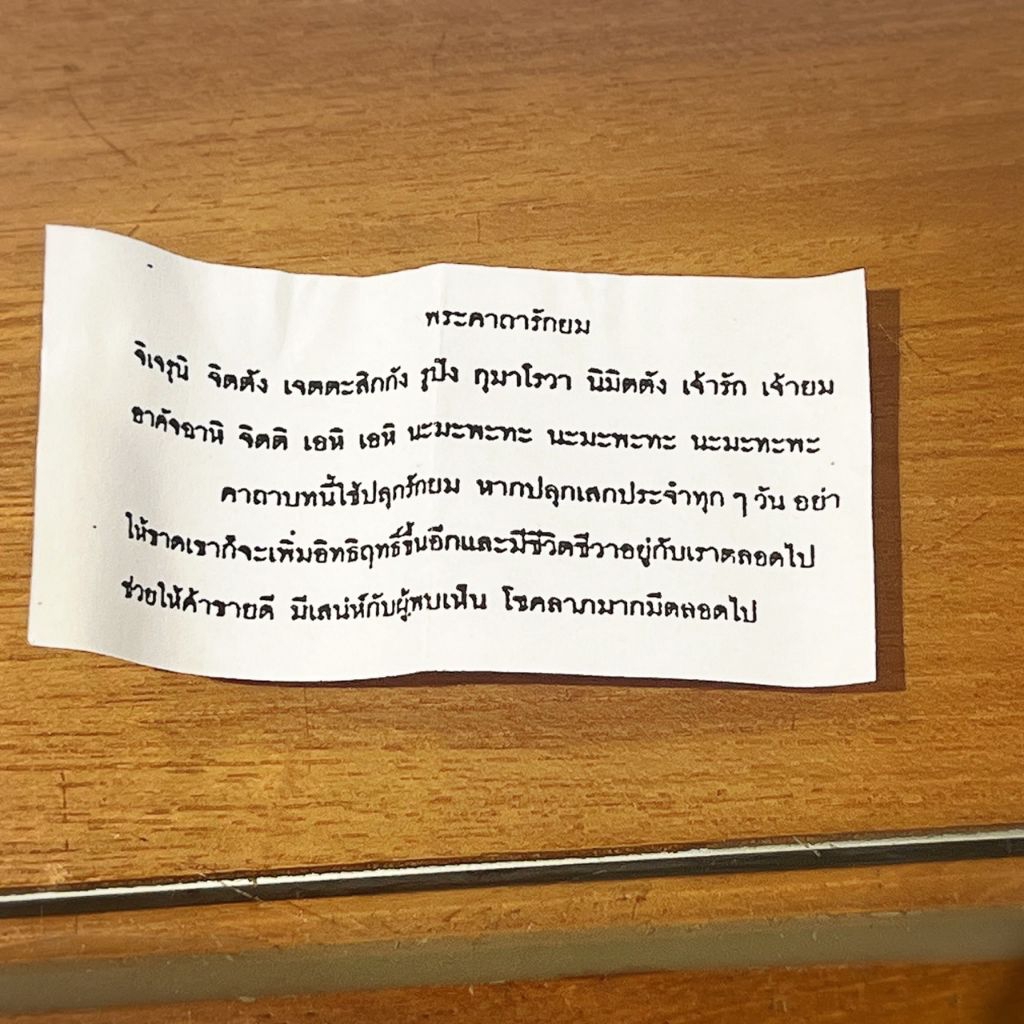 พระคาถารักยม
จิเจรุนิ จิตตัง เจตตะสิกกัง รูปัง กุมาโรวา นิมิตตัง เจ้ารัก เจ้ายม
อาคัจฉานิ จิตติ เอหิ เอหิ นะมะพะทะ นะมะพะทะ นะมะทะพะ
คาถาบทนี้ใช้ปลุกรักยม หากปลุกเสกประจำทุก ๆ วัน อย่า
ให้ขาดเขาก็จะเพิ่มอิทธิฤทธิ์ขึ้นอีกและมีชีวิตชีวาอยู่กับเราตลอดไป
ช่วยให้ค้าขายดี มีเสน่ห์กับผู้พบเห็น โชคลาภมากมีตลอดไป